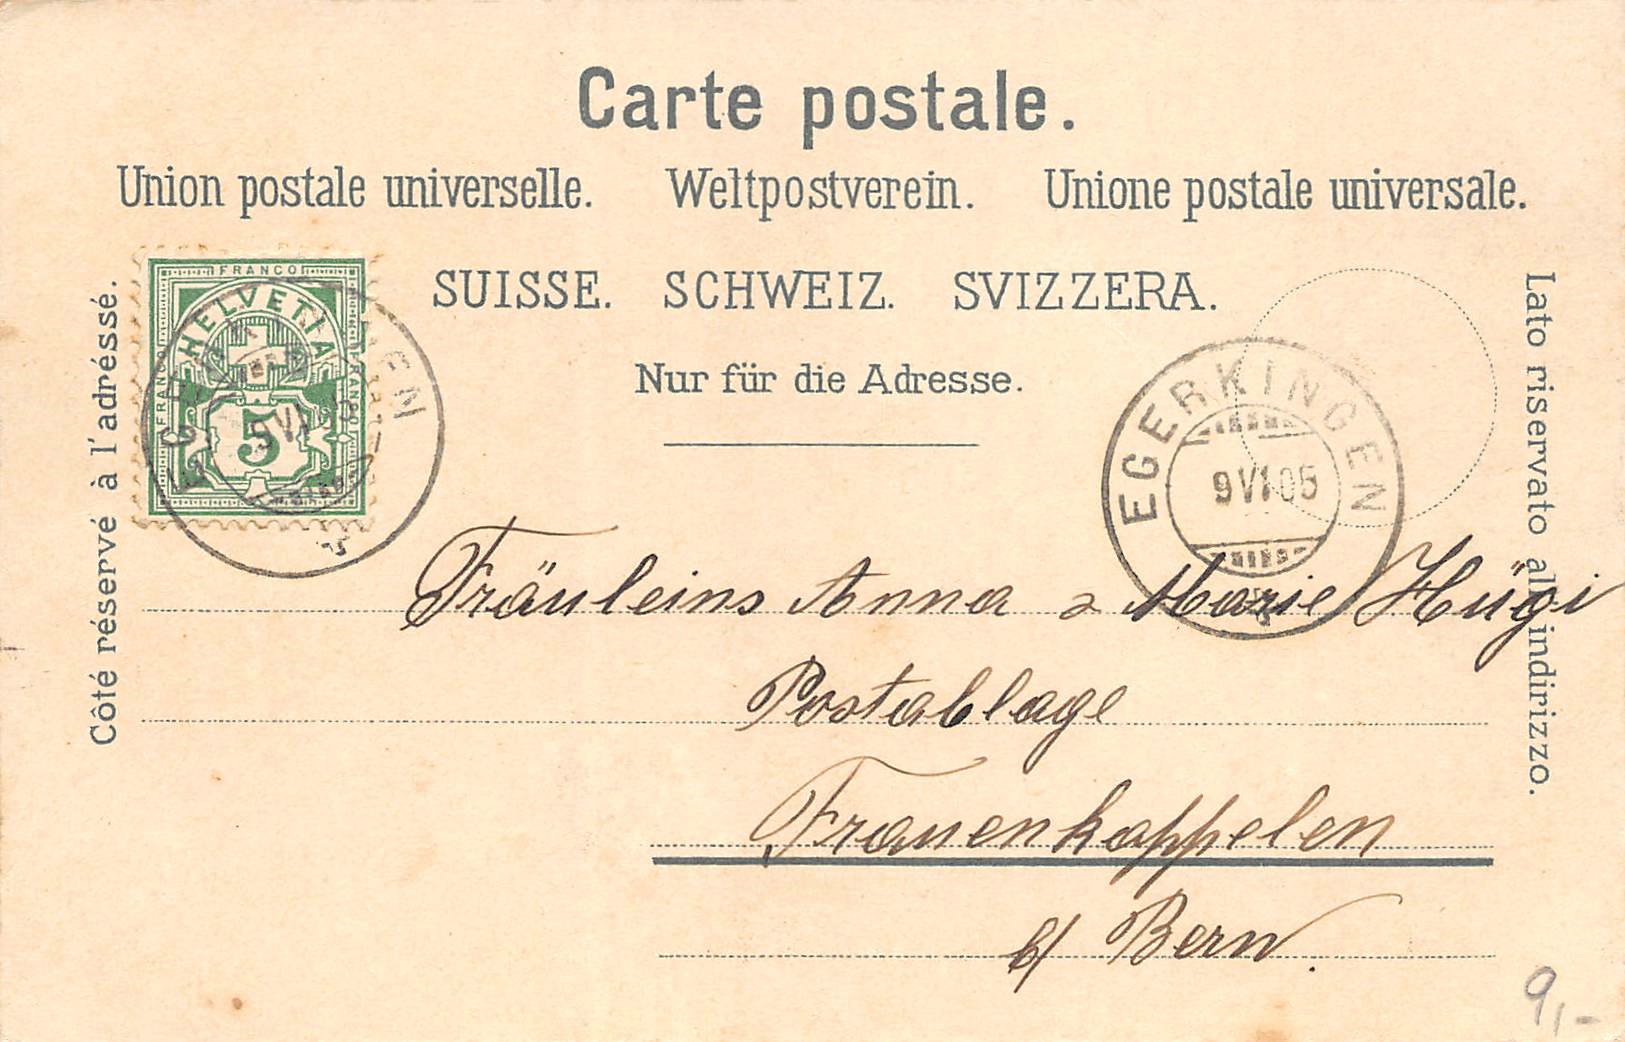 Carte postale.
Union postale universelle. Weltpostverein. Unione postale universale.
SUISSE. SCHWEIZ. SVIZZERA.
Nur für die Adresse.
Côté réservé à l'adrésse.
Lato riservato all'indirizzo.
FRANCO
FRANCO
FRANCO
HELVETIA
5
EGERKINGEN
EGERKINGEN
9 VI 05
Fräuleins Anna & Marie Hügi
Postablage
Frauenkappelen
b/ Bern.
9,-